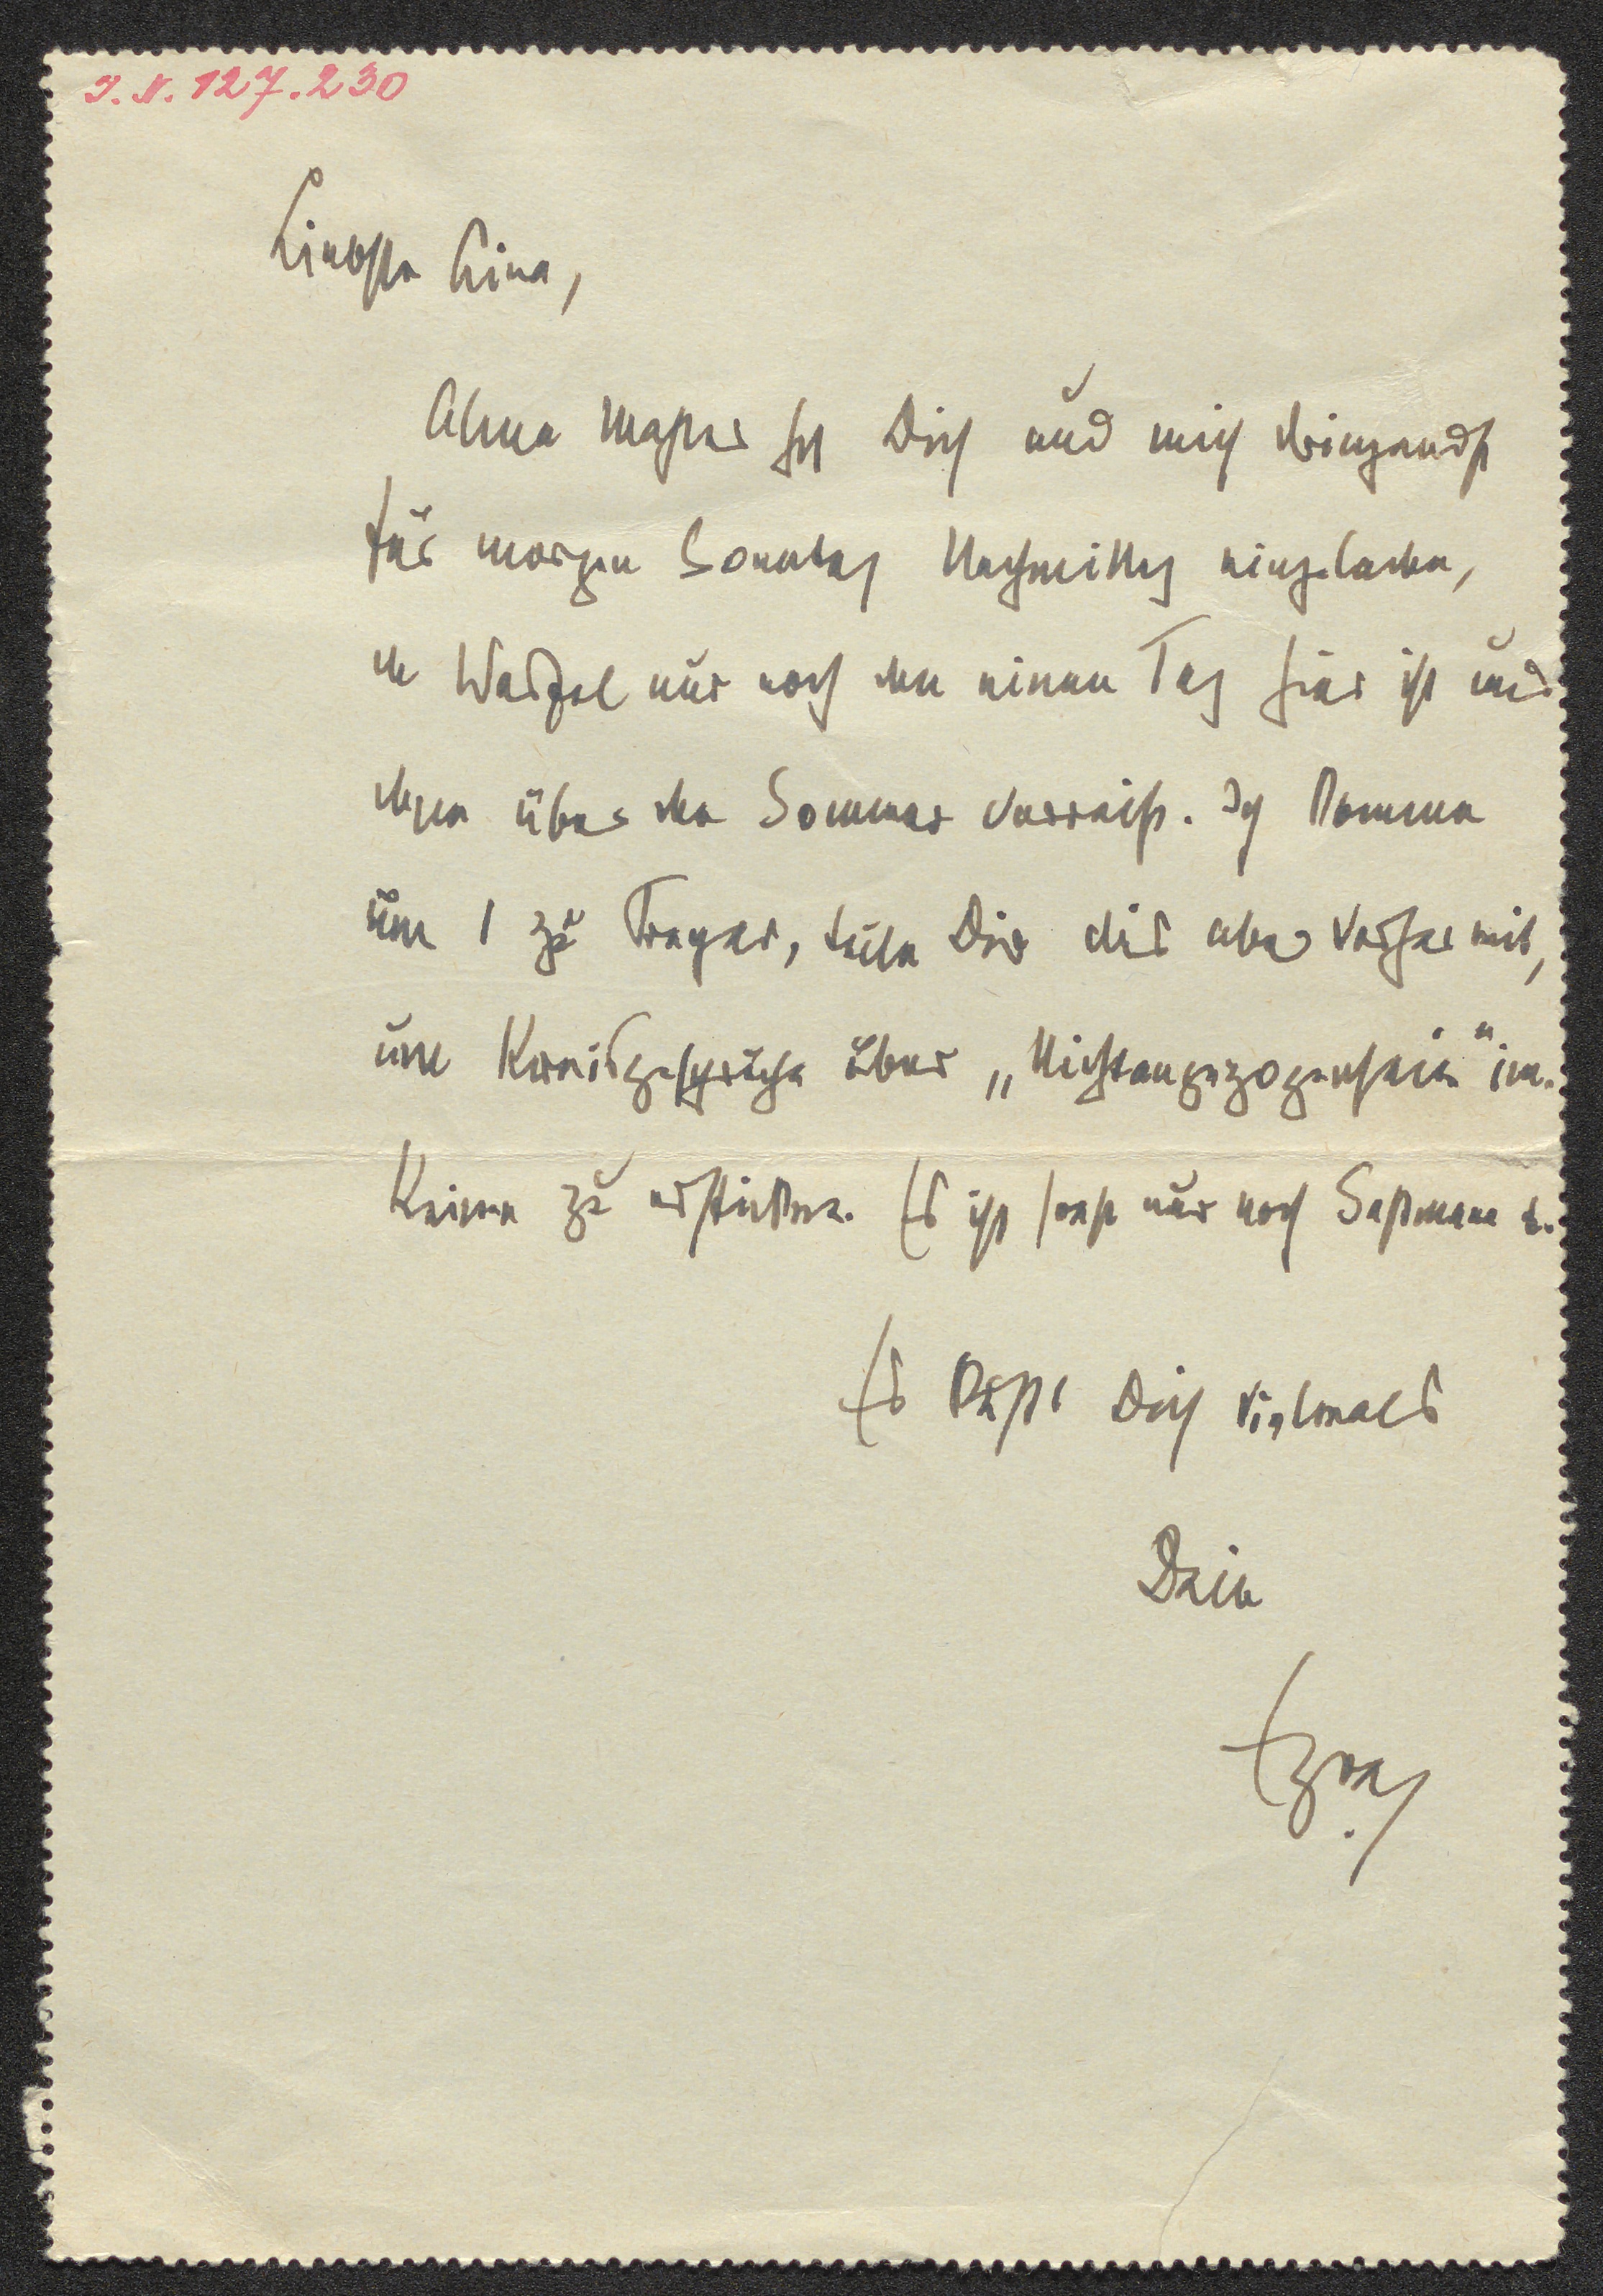 I.N. 127.230
Liebste Lina,
Alma Mahler hat Dich und mich dringendst
für morgen Sonntag Nachmittag eingeladen,
da Werfel nur noch den einen Tag hier ist und
dann über den Sommer verreist. Ich komme
um 1 zu, teile Dir dies aber vorher mit,
um über „Nichtangezogensein" im
Keime zu ersticken. Es ist sonst nur noch Saßmann d.
Es küsst Dich vielmals
Dein